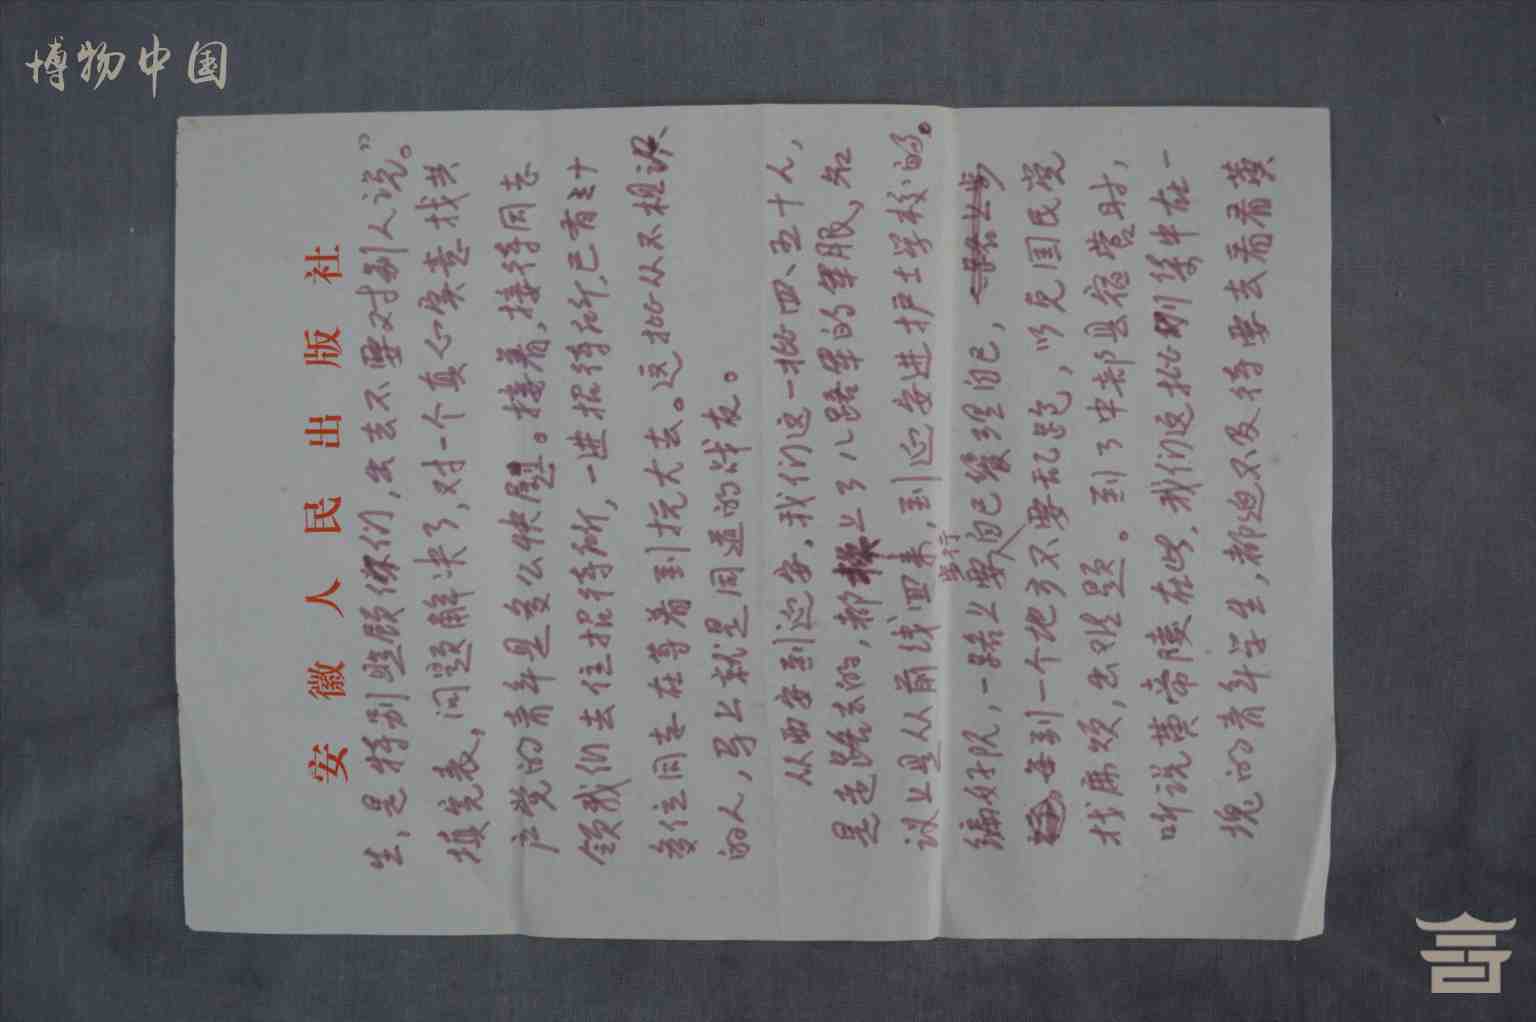 博物中国
安徽人民出版社
生，是特别照顾你们，出去不要对别人说。”
填完表，问题解决了，对一个真心实意找共
产党的青年是多么快慰。接着，接待同志
领我们去住招待所，一进招待所，已有三十
多位同志在等着到抗大去。这批从不相识
的人，马上就是同道的战友。
从西安到延安，我们这一批四、五十人，
是走路去的，都换上了八路军的军服，名
议上是从前线回来，到延安进护士学校的。
编好队，一路上要自己管理自己，
每到一个地方不要乱跑，以免国民党
找麻烦，出难题。到了中部县宿营时，
听说黄帝陵在此，我们这批刚集中在一
块的青年学生，都迫不及待要去看看黄